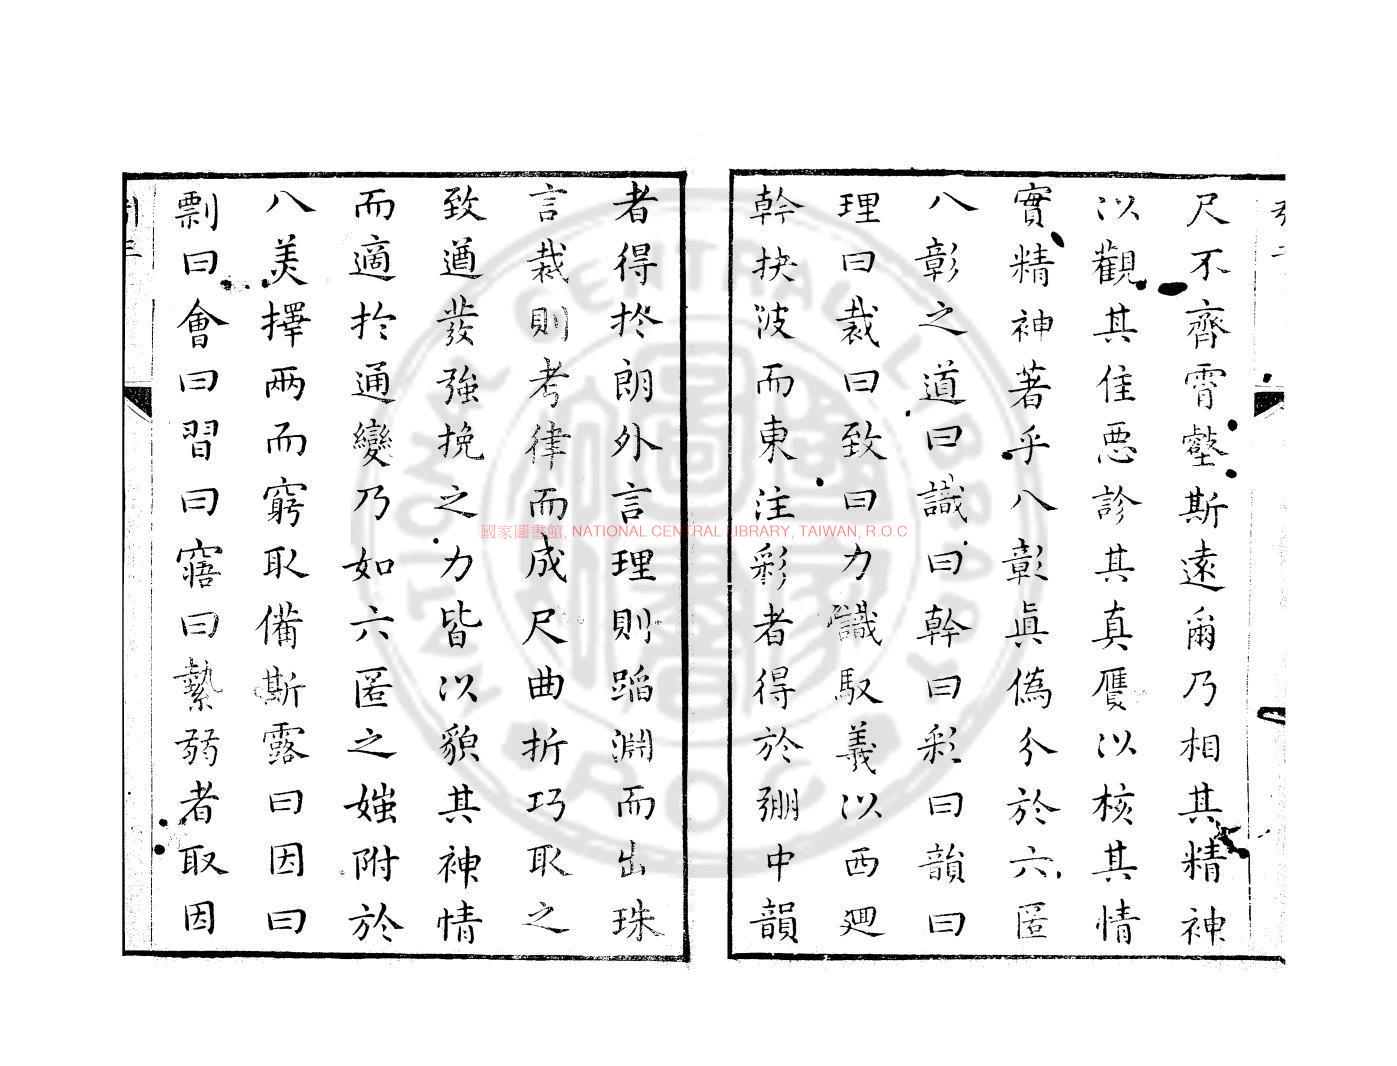 尺不齊霄壑斯遠爾乃相其精神
以觀其佳惡診其真贋以核其情
實精神著乎八彰眞僞分於六匿
八彰之道曰識曰幹曰彩曰韻曰
理曰裁曰致曰力識馭義以西廻
幹抉波而東注彩者得於弸中韻
者得扵朗外言理則蹈淵而出珠
言裁則考律而成尺曲折巧取之
致遒發強挽之力皆以貌其神情
而適扵通變乃如六匿之媸附於
八美擇兩而窮取備斯露曰因曰
剽曰會曰習曰寤曰縶弱者取因
國家圖書館, NATIONAL CENTRAL LIBRARY, TAIWAN, R.O.C.
NATIONAL CENTRAL LIBRARY R.O.C.